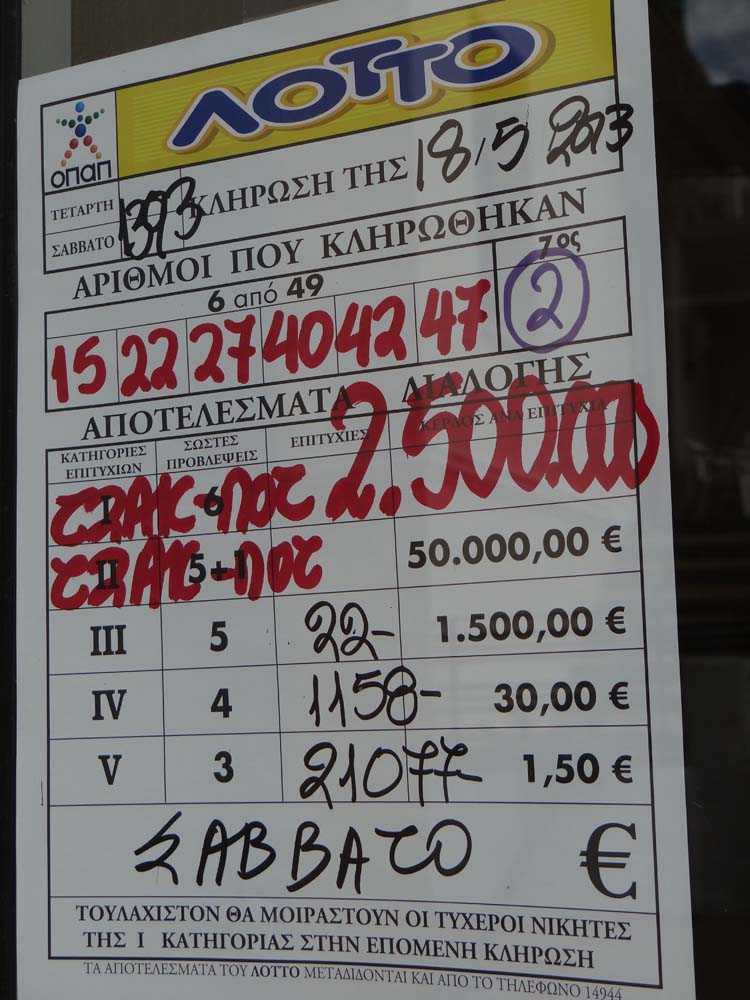 ΛΟΤΤΟ
οπαπ
ΤΕΤΑΡΤΗ
ΣΑΒΒΑΤΟ
1393 ΚΛΗΡΩΣΗ ΤΗΣ 18/5 2013
ΑΡΙΘΜΟΙ ΠΟΥ ΚΛΗΡΩΘΗΚΑΝ
6 από 49
7ος
15 22 27 40 42 47 2
ΑΠΟΤΕΛΕΣΜΑΤΑ ΔΙΑΛΟΓΗΣ
ΚΑΤΗΓΟΡΙΕΣ ΕΠΙΤΥΧΙΩΝ
ΣΩΣΤΕΣ ΠΡΟΒΛΕΨΕΙΣ
ΕΠΙΤΥΧΙΕΣ
ΚΕΡΔΟΣ ΑΝΑ ΕΠΙΤΥΧΙΑ
I 6 ΤΖΑΚ-ΠΟΤ 2.500.000
II 5+1 ΤΖΑΚ-ΠΟΤ 50.000,00 €
III 5 22- 1.500,00 €
IV 4 1158- 30,00 €
V 3 21077- 1,50 €
ΣΑΒΒΑΤΟ €
ΤΟΥΛΑΧΙΣΤΟΝ ΘΑ ΜΟΙΡΑΣΤΟΥΝ ΟΙ ΤΥΧΕΡΟΙ ΝΙΚΗΤΕΣ
ΤΗΣ Ι ΚΑΤΗΓΟΡΙΑΣ ΣΤΗΝ ΕΠΟΜΕΝΗ ΚΛΗΡΩΣΗ
ΤΑ ΑΠΟΤΕΛΕΣΜΑΤΑ ΤΟΥ ΛΟΤΤΟ ΜΕΤΑΔΙΔΟΝΤΑΙ ΚΑΙ ΑΠΟ ΤΟ ΤΗΛΕΦΩΝΟ 14944